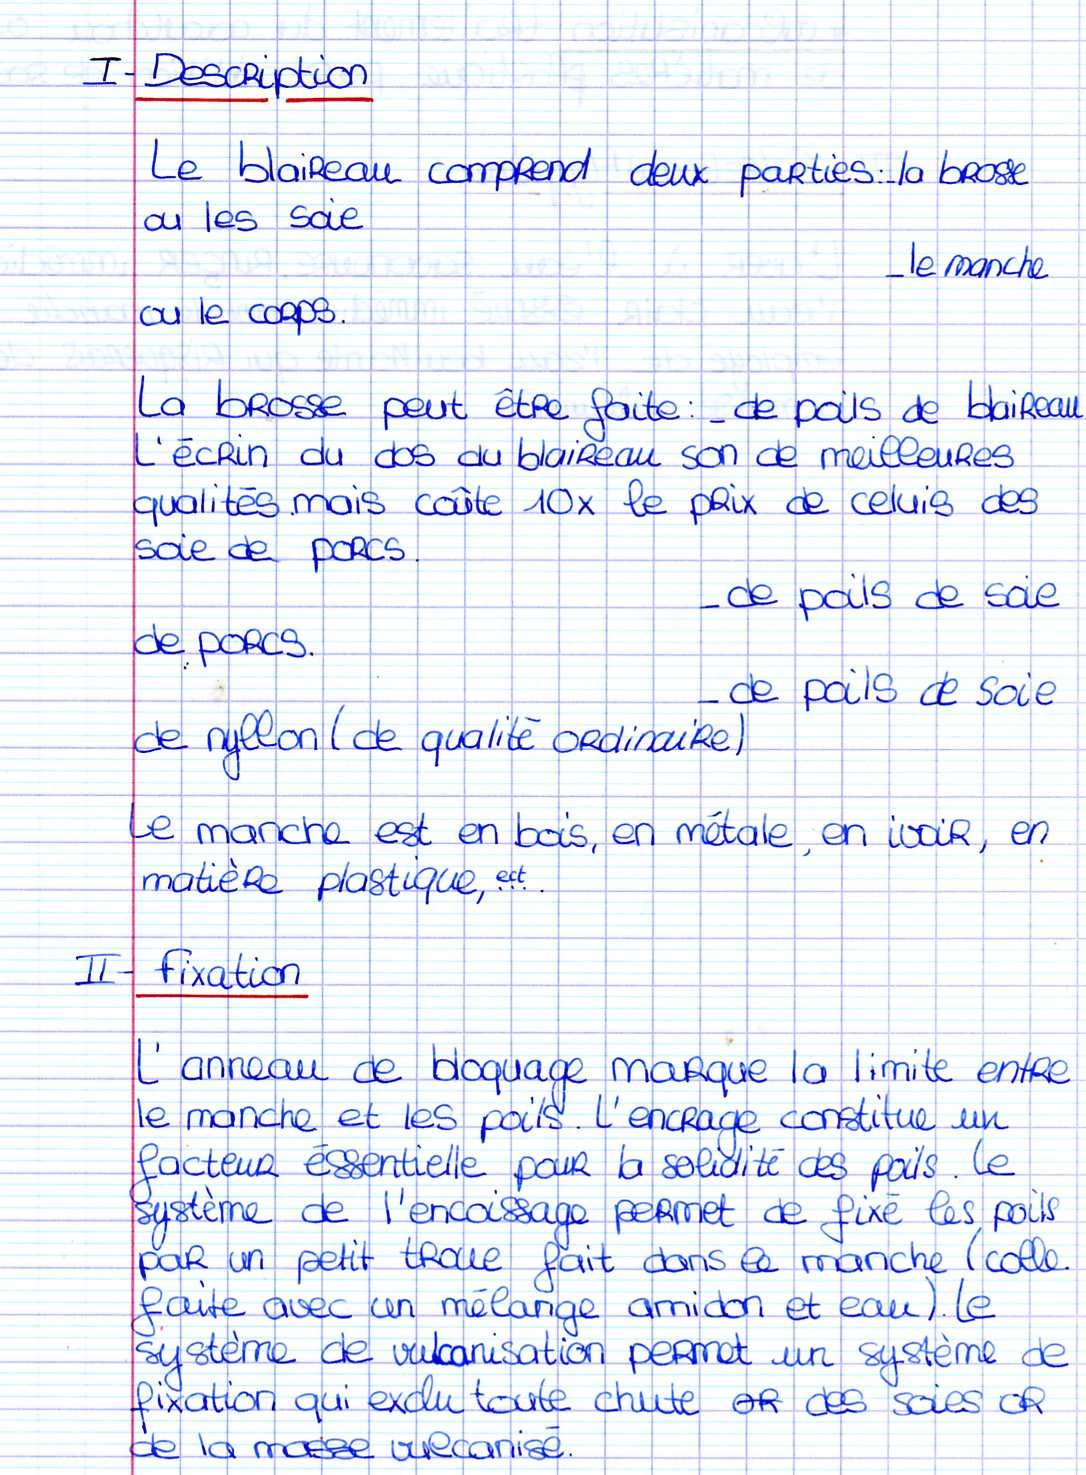 I- Description
Le blaireau comprend deux parties: - la brosse
ou les soie
- le manche
ou le corps.
La brosse peut être faite: - de poils de blaireau
L'écrin du dos du blaireau son de meilleures
qualités mais coûte 10x le prix de celuis des
soie de porcs.
- de poils de soie
de porcs.
- de poils de soie
de nyllon (de qualité ordinaire)
Le manche est en bois, en métale, en ivoir, en
matière plastique, ect.
II- fixation
L'anneau de bloquage marque la limite entre
le manche et les poils. L'encrage constitue un
facteur éssentielle pour la solidité des poils. Le
système de l'encaissage permet de fixé les poils
par un petit troue fait dans le manche (colle
faite avec un mélange amidon et eau). Le
système de vulcanisation permet un système de
fixation qui exclu toute chute des soies or
de la masse vulcanisé.